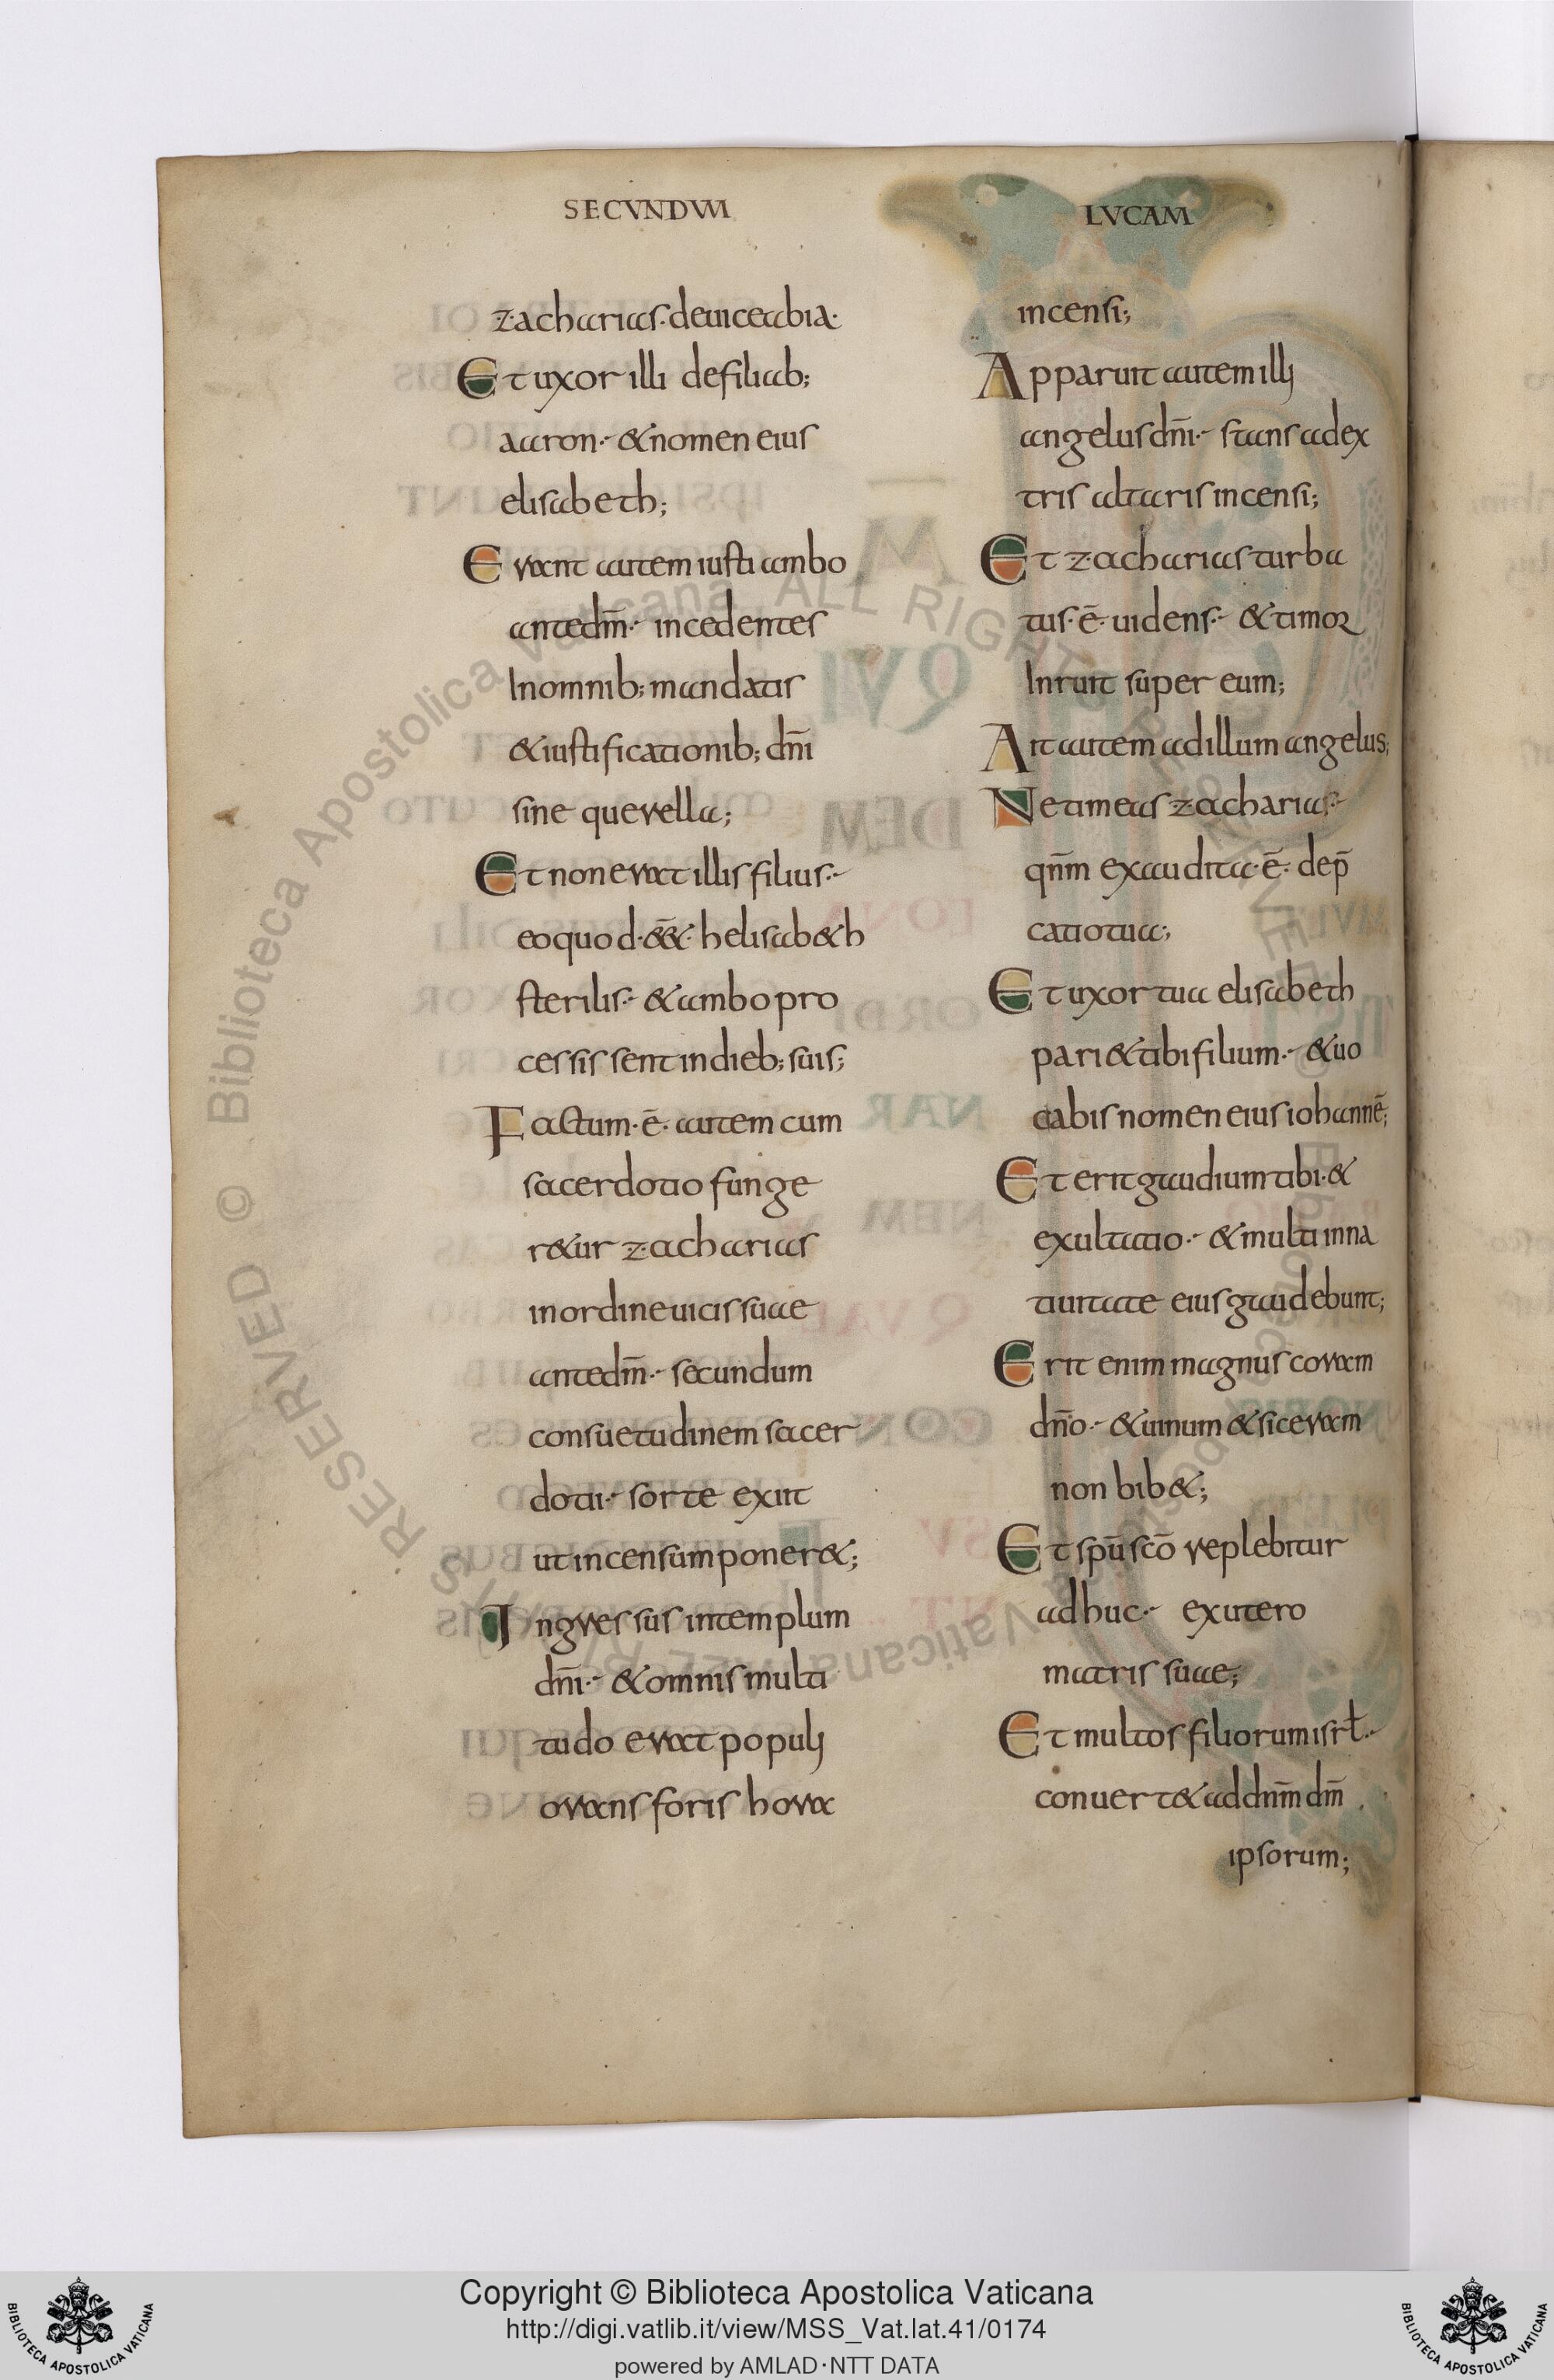 SECUNDUM
zacharias· deuice abia·
Et uxor illi defiliab;
aaron·- & nomen eius
elisabeth;
Erant autem iusti ambo
ante dm̄·- incedentes
Inomnib; mandatis
& iustificationib; dn̄i
sine querella;
Et non erat illis filius·-
eo quod· &̄&· helisab&h
sterilis·- & ambo pro
cessissent in dieb; suis;
Factum· ē· autem cum
sacerdotio funge
r&ur zacharias
in ordine uicis suae
ante dm̄·- secundum
consuetudinem sacer
doti·- sorte exiit
ut incensum poner&;
Ingressus in templum
dn̄i·- & omnis multi
tudo erat populi
orans foris hora
LUCAM
incensi;
Apparuit autem illi
angelus dn̄i·- stans adex
tris altaris incensi;
Et zacharias turba
tus· ē· uidens·- & timor
Inruit super eum;
Ait autem ad illum angelus;
Ne timeas zacharias·-
qn̄m exaudita· ē· dep̄
catio tua;
Et uxor tua elisabeth
pari& tibi filium·- & uo
cabis nomen eius iohannē;
Et erit gaudium tibi· &
exultatio·- & multi in na
tiuitate eius gaudebunt;
Erit enim magnus coram
dn̄o·- & uinum & siceram
non bib&;
Et spū scō replebitur
adhuc·- ex utero
matris suae;
Et multos filiorum isrł·-
conuert& ad dnm̄ dm̄
ipsorum;
Copyright © Biblioteca Apostolica Vaticana
http://digi.vatlib.it/view/MSS_Vat.lat.41/0174
powered by AMLAD·NTT DATA
BIBLIOTECA APOSTOLICA VATICANA
BIBLIOTECA APOSTOLICA VATICANA